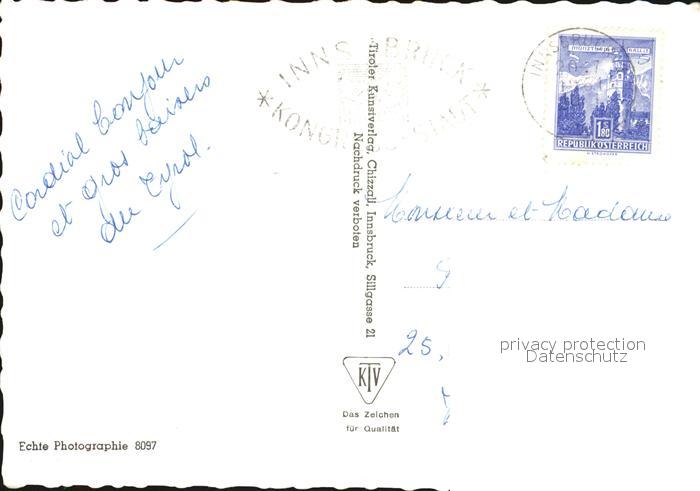 Cordial bonjour
et gros baisers
du Tyrol.
INNSBRUCK
* KONGRESSSTADT *
"Tiroler Kunstverlag, Chizzali, Innsbruck, Sillgasse 21
Nachdruck verboten
INNSBRUCK
1 S 80
REPUBLIK ÖSTERREICH
Monsieur et Madame
25,
privacy protection
Datenschutz
KTV
Das Zeichen
für Qualität
Echte Photographie 8097